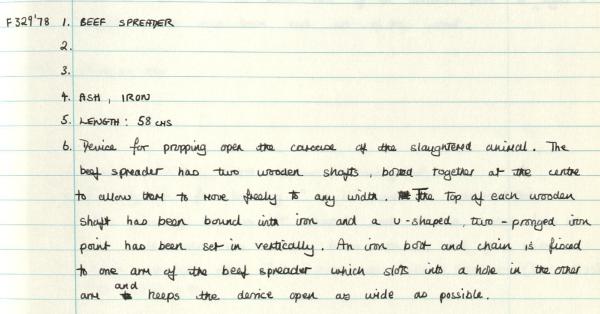 F329'78 1. BEEF SPREADER
2.
3.
4. ASH, IRON
5. LENGTH: 58 CMS
6. Device for propping open the carcase of the slaughtered animal. The
beef spreader has two wooden shafts, bolted together at the centre
to allow them to move freely to any width. The top of each wooden
shaft has been bound with iron and a U-shaped, two-pronged iron
point has been set in vertically. An iron bolt and chain is fixed
to one arm of the beef spreader which slots into a hole in the other
arm and keeps the device open as wide as possible.